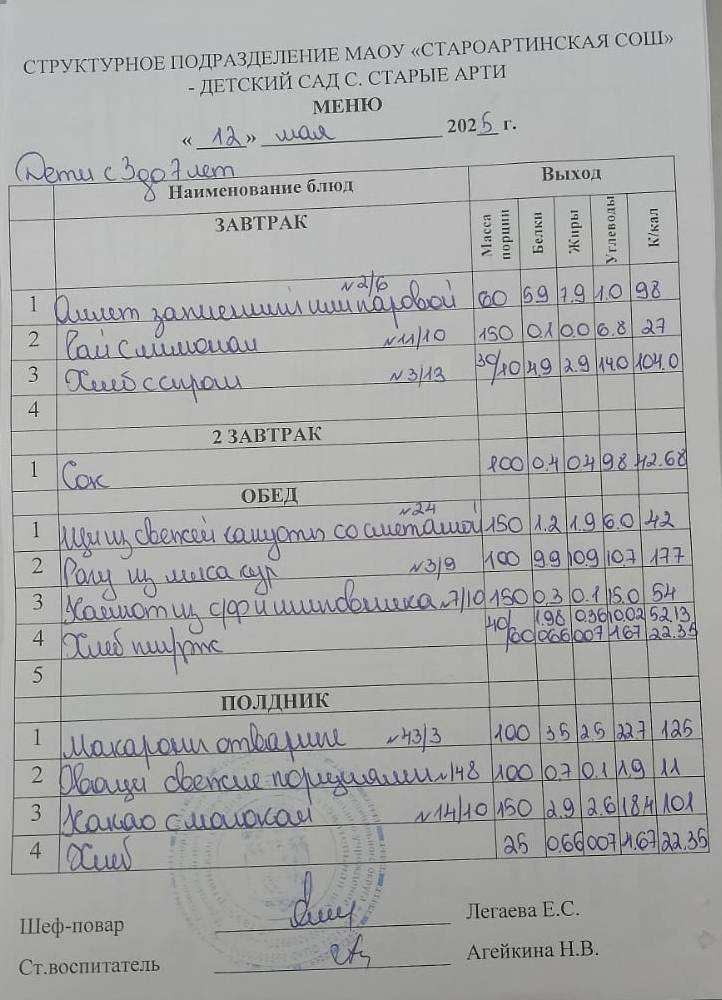 СТРУКТУРНОЕ ПОДРАЗДЕЛЕНИЕ МАОУ «СТАРОАРТИНСКАЯ СОШ»
- ДЕТСКИЙ САД С. СТАРЫЕ АРТИ
МЕНЮ
« 12 » мая 2025 г.
Дети с 3 до 7 лет
Наименование блюд Выход
ЗАВТРАК Масса порции Белки Жиры Углеводы К/кал
№2/6
1 Омлет запеченный или паровой 60 5.9 7.9 1.0 98
2 Чай с лимоном №11/10 150 0.1 0.0 6.8 27
3 Хлеб с сыром №3/13 30/10 4.9 2.9 14.0 104.0
4
2 ЗАВТРАК
1 Сок 100 0.4 0.4 9.8 42.68
ОБЕД
№24
1 Щи из свежей капусты со сметаной 150 1.2 1.9 6.0 42
2 Рагу из мяса кур №3/9 100 9.9 10.9 10.7 177
3 Компот из с/ф и шиповника №7/10 150 0.3 0.1 15.0 54
4 Хлеб пш/рж 40/60 1.98 0.36 10.02 52.13
0.66 0.07 1.67 22.35
5
ПОЛДНИК
1 Макароны отварные №43/3 100 3.5 2.5 22.7 125
2 Овощи свежие порциями №148 100 0.7 0.1 1.9 11
3 Какао с молоком №14/10 150 2.9 2.6 18.4 101
4 Хлеб 25 0.66 0.07 1.67 22.35
Шеф-повар Легаева Е.С.
Ст.воспитатель Агейкина Н.В.